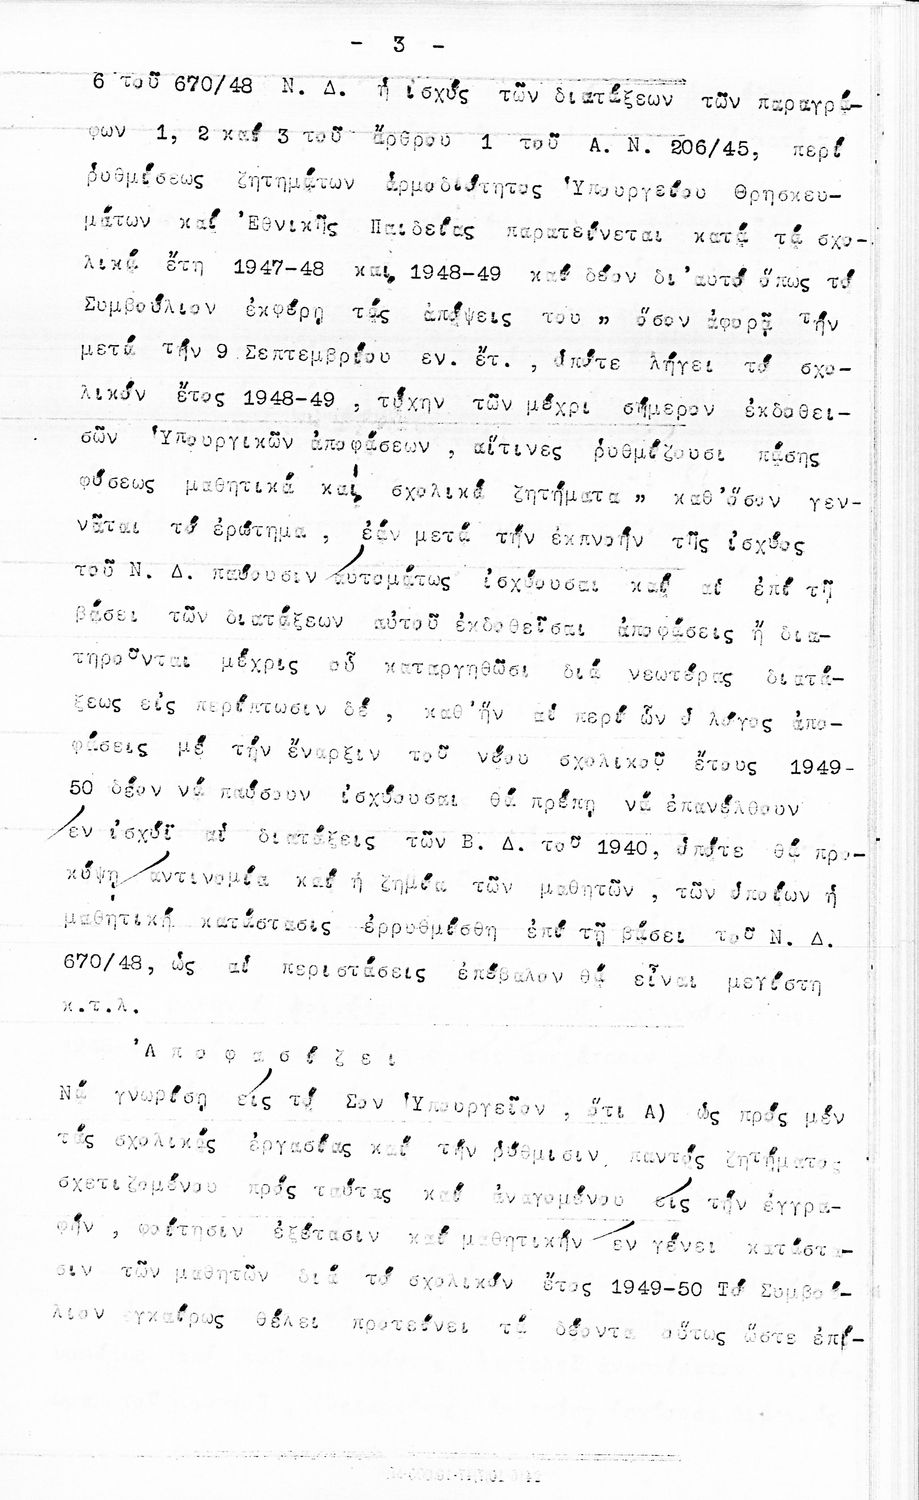 - 3 -
6 τοῦ 670/48 Ν. Δ. ἡ ἰσχύς τῶν διατάξεων τῶν παραγρά-
φων 1, 2 καί 3 τοῦ ἄρθρου 1 τοῦ Α. Ν. 206/45, περί
ῥυθμίσεως ζητημάτων ἁρμοδιότητος Ὑπουργείου Θρησκευ-
μάτων καί Ἐθνικῆς Παιδείας παρατείνεται κατά τά σχο-
λικά ἔτη 1947-48 και 1948-49 καί δέον δι'αυτό ὅπως τό
Συμβούλιον ἐκφέρῃ τάς ἀπόψεις του „ ὅσον ἀφορᾷ τήν
μετά τήν 9 Σεπτεμβρίου εν. ἔτ. , ὁπότε λήγει τό σχο-
λικόν ἔτος 1948-49 , τύχην τῶν μέχρι σήμερον ἐκδοθει-
σῶν Ὑπουργικῶν ἀποφάσεων , αἵτινες ῥυθμίζουσι πάσης
φύσεως μαθητικά καί σχολικά ζητήματα „ καθ'ὅσον γεν-
νᾶται τό ἐρώτημα , ἐάν μετά τήν ἐκπνοήν τῆς ἰσχύος
τοῦ Ν. Δ. παύουσιν αυτομάτως ἰσχύουσαι καί αἱ ἐπί τῇ
βάσει τῶν διατάξεων αὐτοῦ ἐκδοθεῖσαι ἀποφάσεις ἤ δια-
τηροῦνται μέχρις οὗ καταργηθῶσι διά νεωτέρας διατά-
ξεως εἰς περίπτωσιν δέ , καθ'ἥν αἱ περί ὧν ὁ λόγος ἀπο-
φάσεις μέ τήν ἔναρξιν τοῦ νέου σχολικοῦ ἔτους 1949-
50 δέον νά παύσουν ἰσχύουσαι θά πρέπῃ νά ἐπανέλθουν
εν ἰσχύϊ αἱ διατάξεις τῶν Β. Δ. τοῦ 1940, ὁπότε θά προ-
κύψῃ αντινομία καί ἡ ζημία τῶν μαθητῶν , τῶν ὁποίων ἡ
μαθητική κατάστασις ἐρρυθμίσθη ἐπί τῇ βάσει τοῦ Ν. Δ.
670/48, ὡς αἱ περιστάσεις ἐπέβαλον θά εἶναι μεγίστη
κ.τ.λ.
Ἀ π ο φ α σ ί ζ ε ι
Νά γνωρίσῃ εἰς τό Σον Ὑπουργεῖον , ὅτι Α) ὡς πρός μέν
τάς σχολικάς ἐργασίας καί τήν ῥύθμισιν παντός ζητήματος
σχετιζομένου πρός ταύτας καί ἀναγομένου εἰς τήν ἐγγρα-
φήν , φοίτησιν ἐξέτασιν καί μαθητικήν εν γένει κατάστα-
σιν τῶν μαθητῶν διά τό σχολικόν ἔτος 1949-50 Τό Συμβού-
λιον εγκαίρως θέλει προτείνει τά δέοντα οὕτως ὥστε ἐπί-